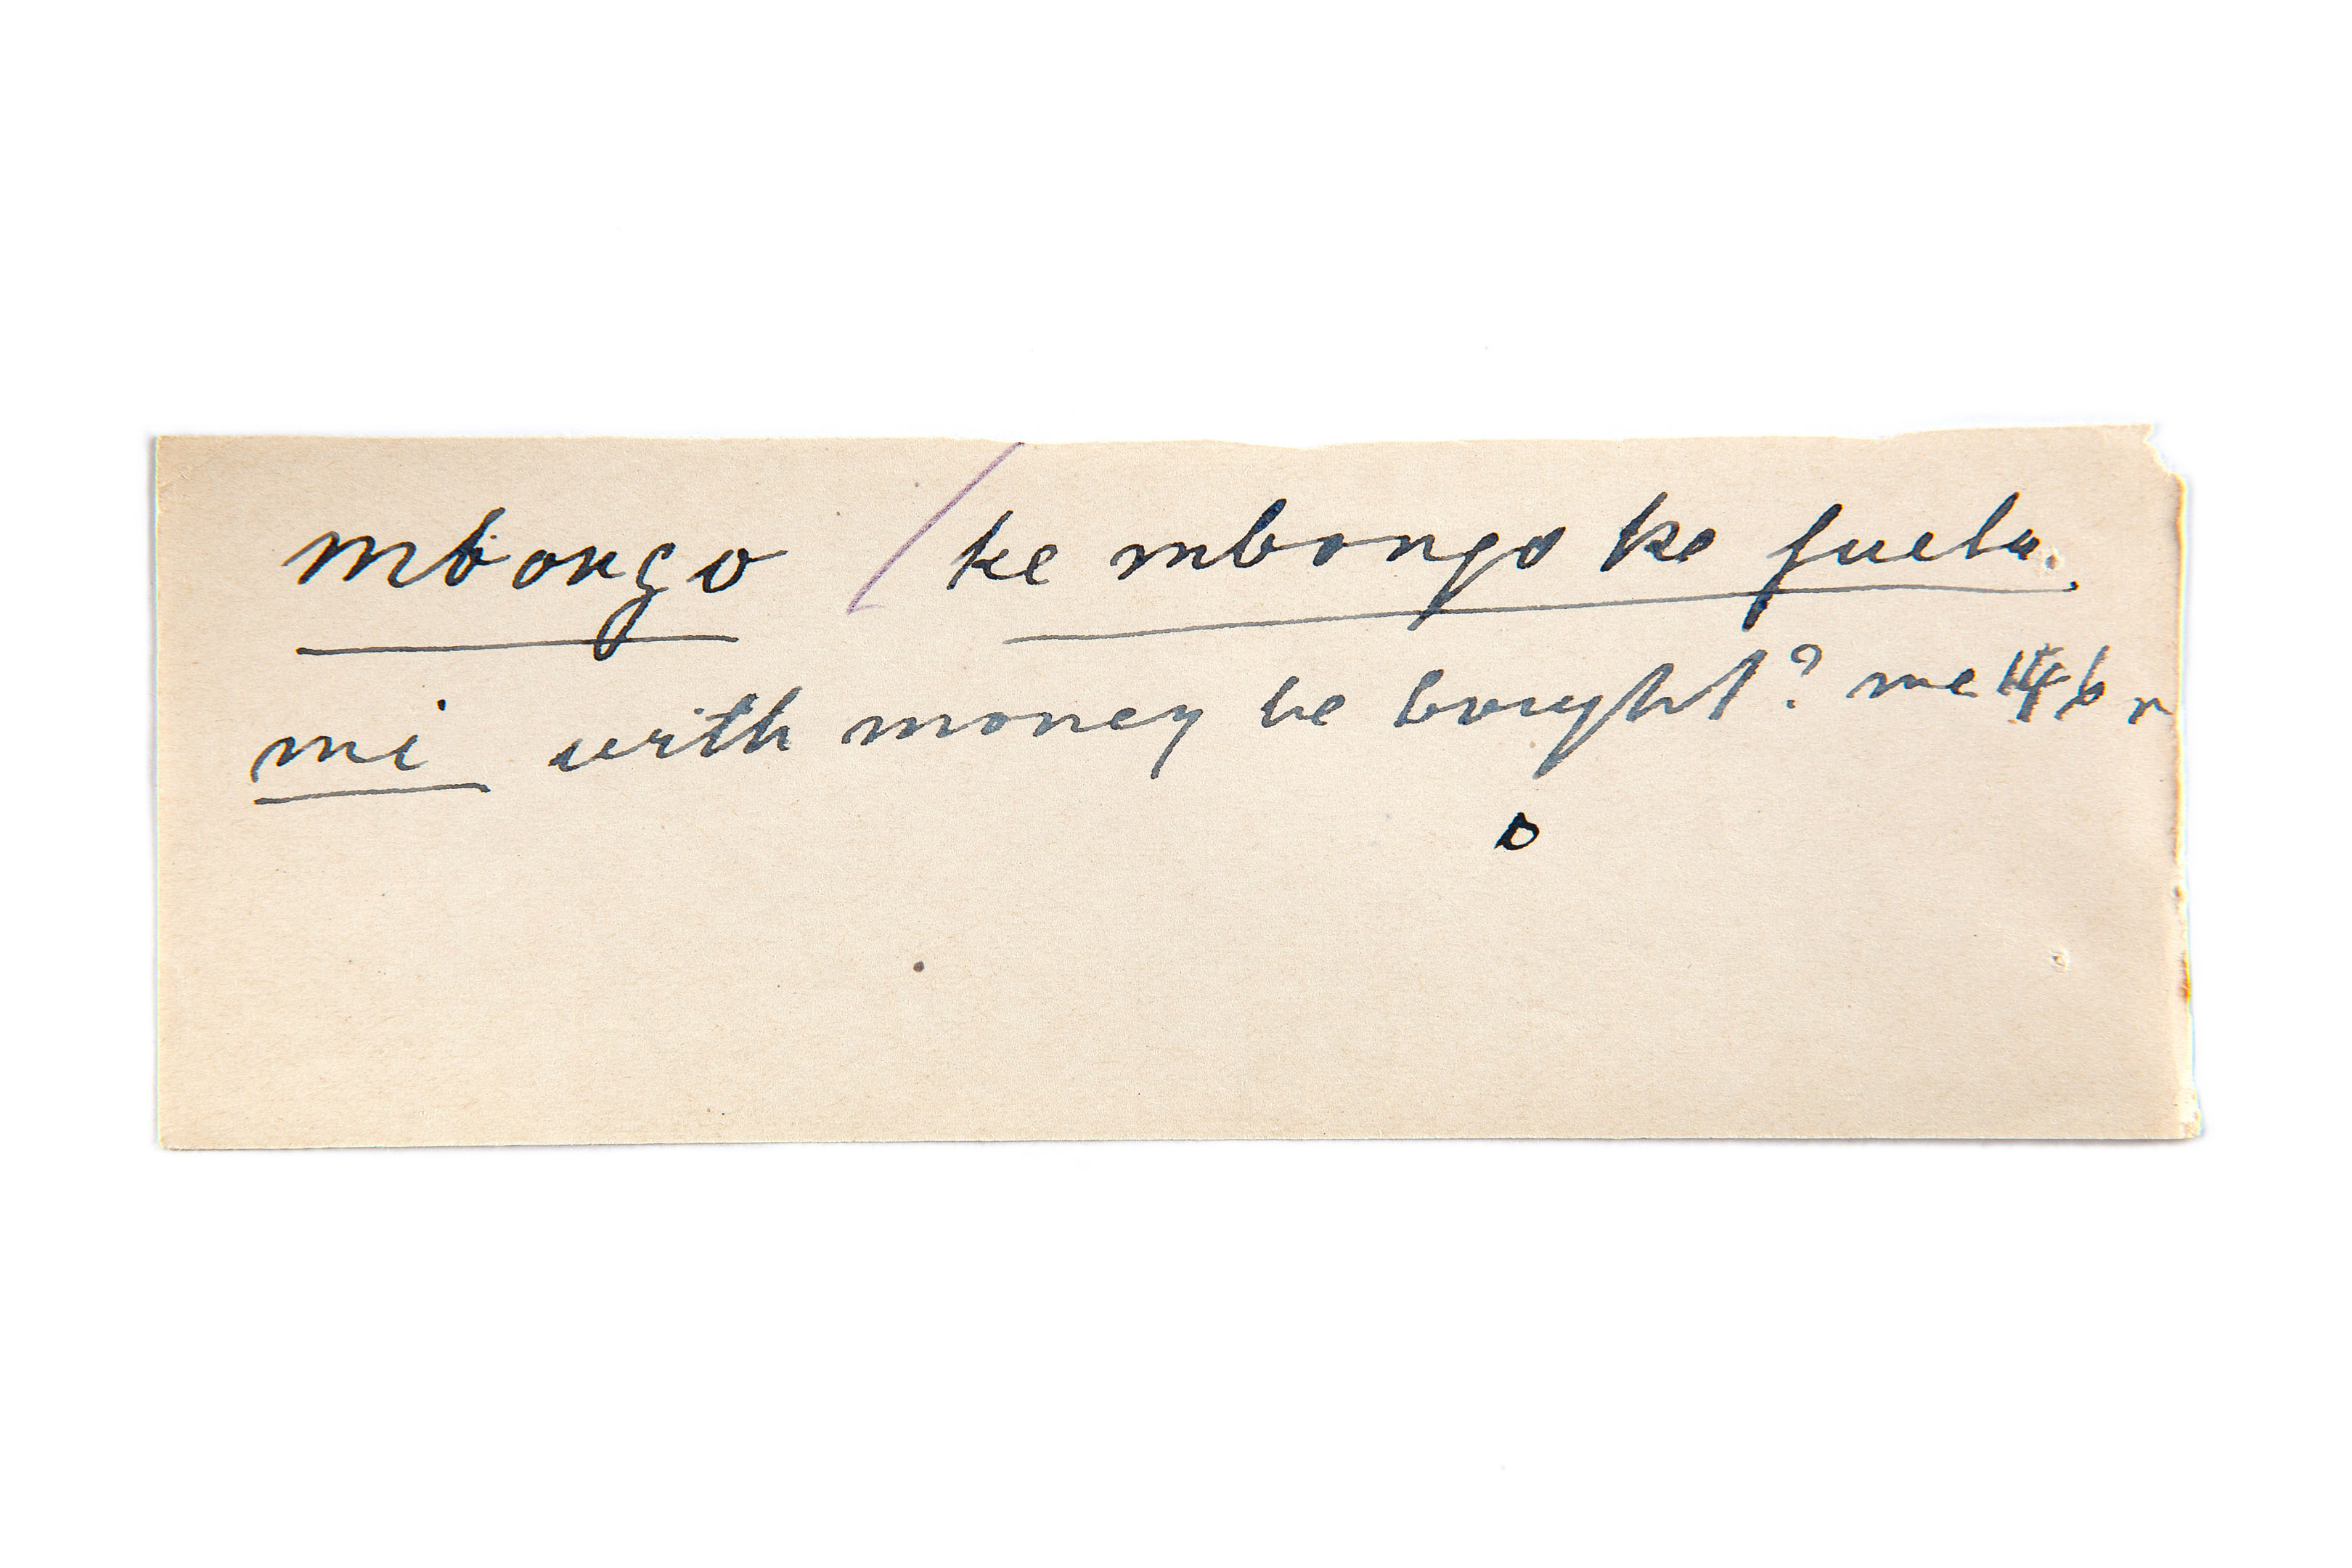 mbongo / ke mbongo ke fuela
mi with money be bought? me